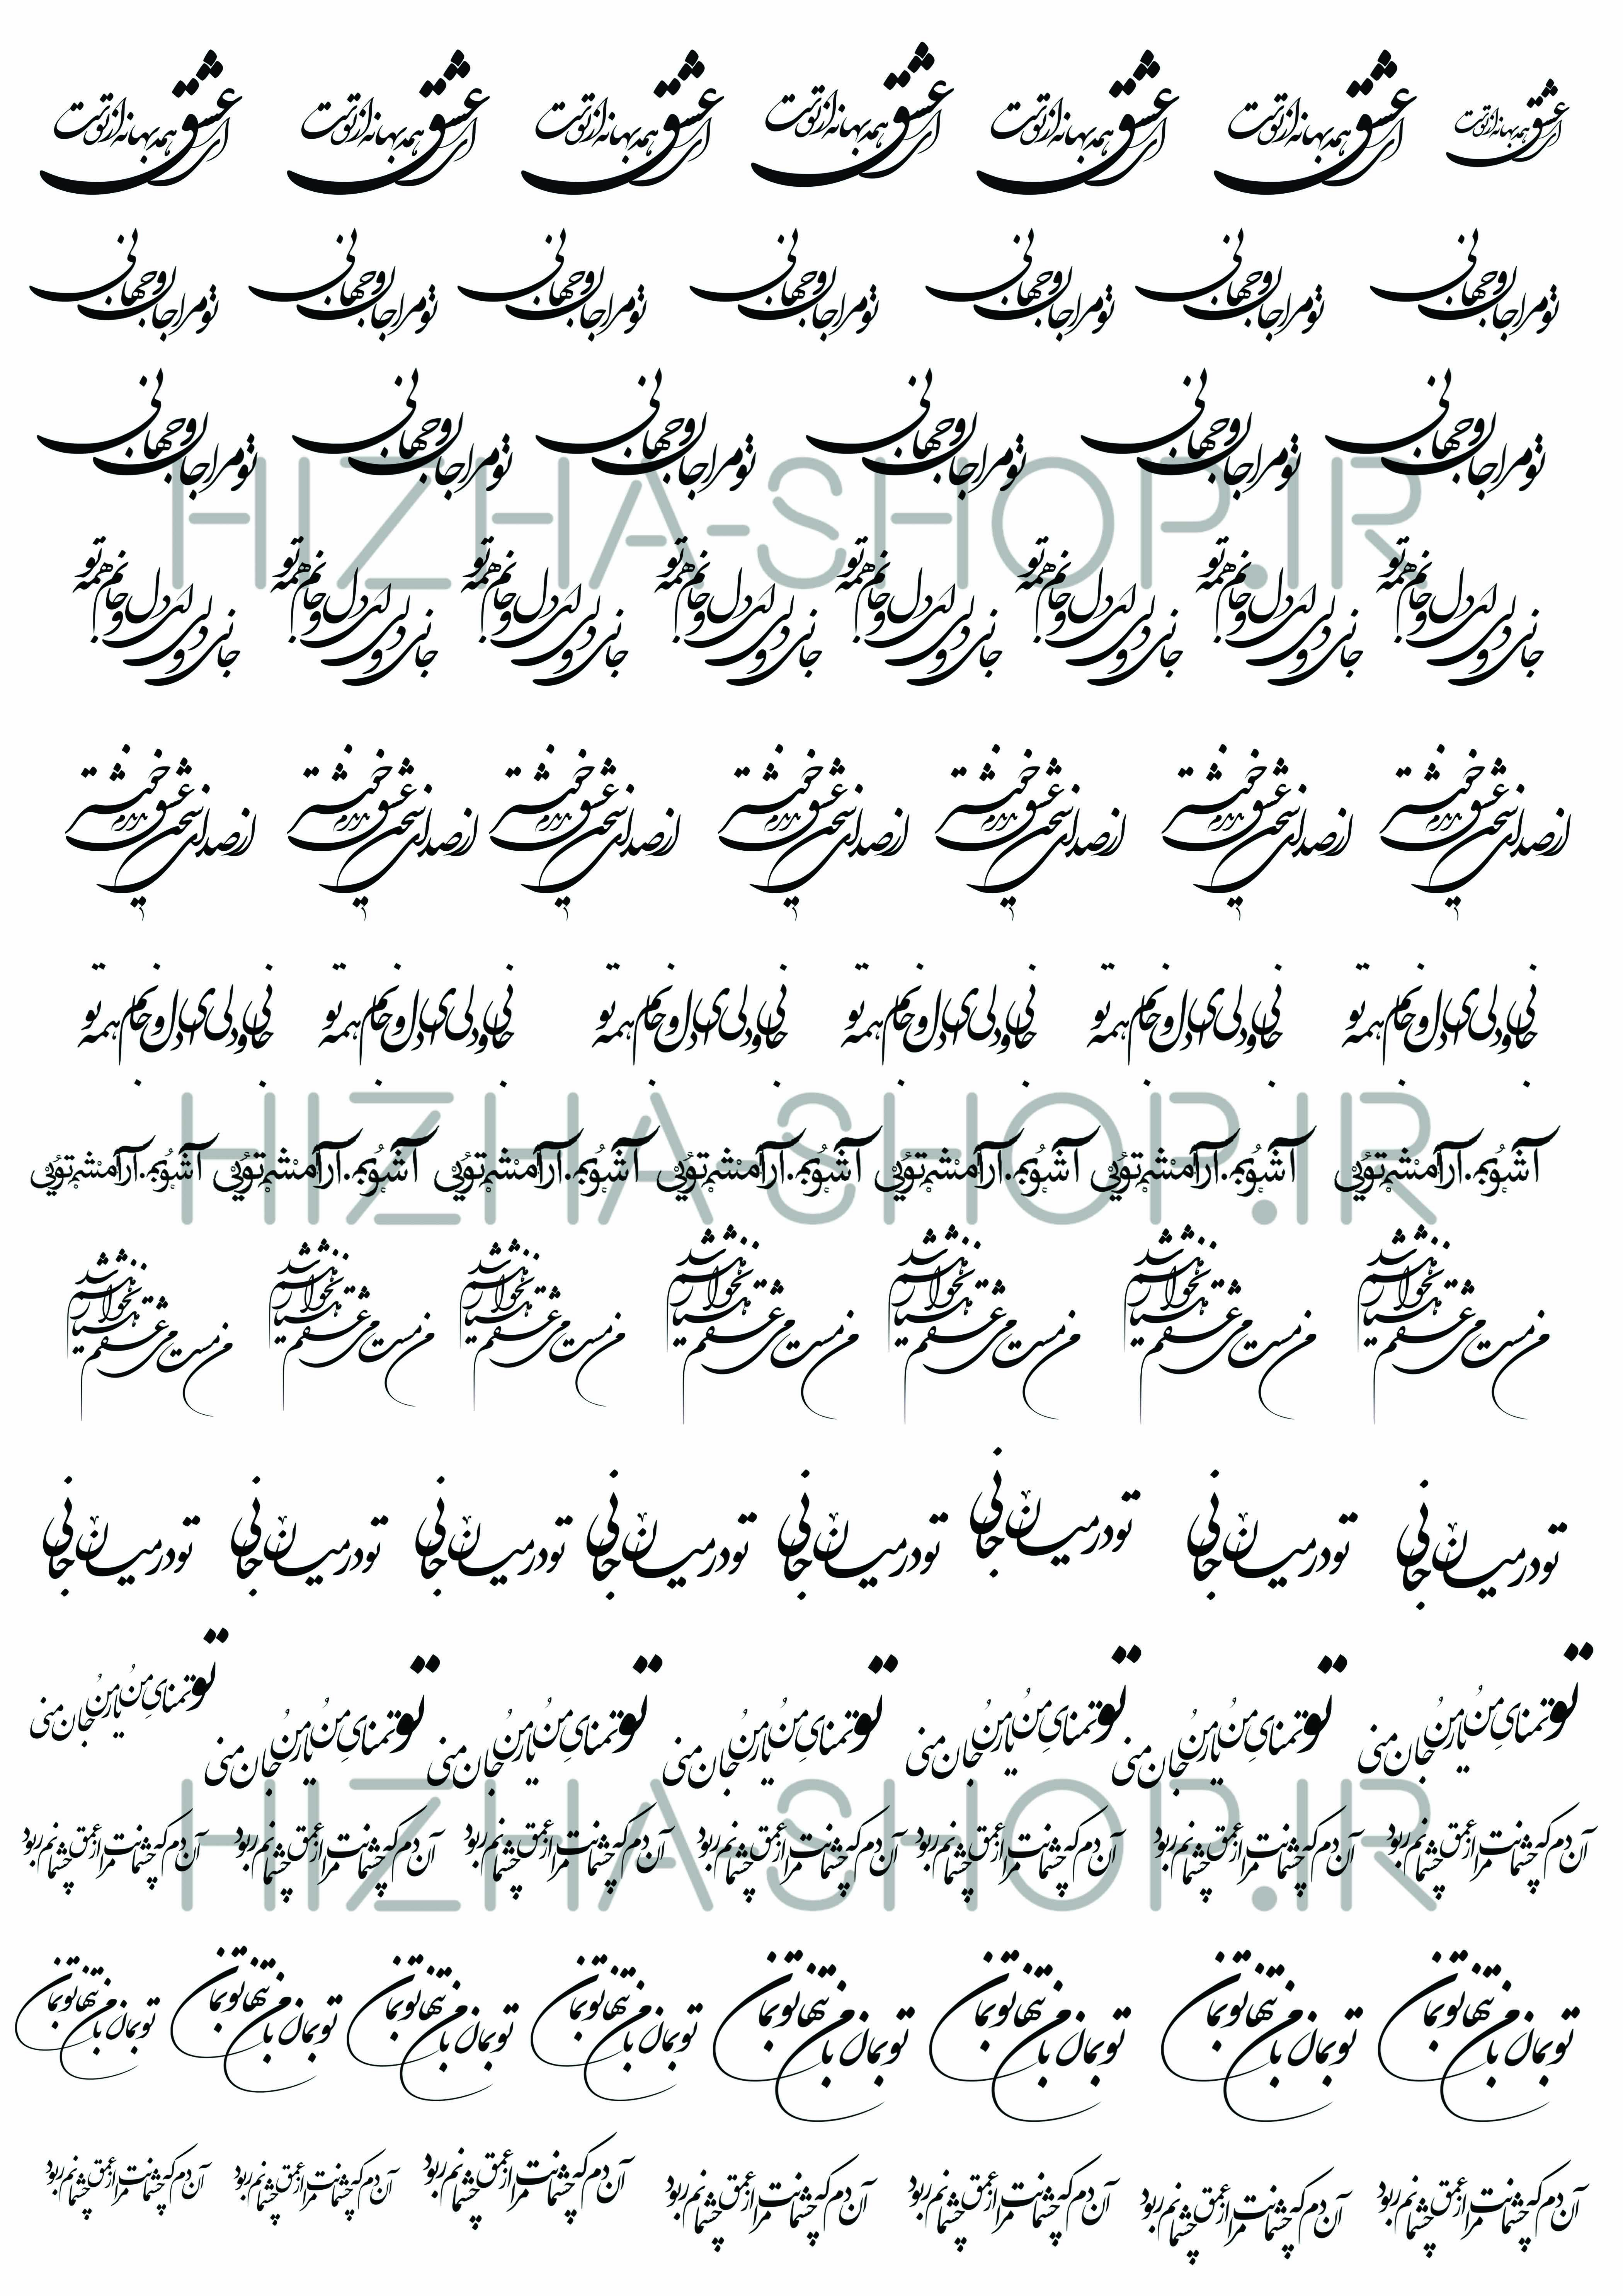 ای عشق همه بهانه از توست ای عشق همه بهانه از توست ای عشق همه بهانه از توست ای عشق همه بهانه از توست ای عشق همه بهانه از توست ای عشق همه بهانه از توست ای عشق همه بهانه از توست
تو مرا جان و جهانی تو مرا جان و جهانی تو مرا جان و جهانی تو مرا جان و جهانی تو مرا جان و جهانی تو مرا جان و جهانی تو مرا جان و جهانی
تو مرا جان و جهانی تو مرا جان و جهانی تو مرا جان و جهانی تو مرا جان و جهانی تو مرا جان و جهانی تو مرا جان و جهانی
HIZHA-SHOP.IR
جانی و دلی ای دل و جانم همه تو جانی و دلی ای دل و جانم همه تو جانی و دلی ای دل و جانم همه تو جانی و دلی ای دل و جانم همه تو جانی و دلی ای دل و جانم همه تو جانی و دلی ای دل و جانم همه تو جانی و دلی ای دل و جانم همه تو جانی و دلی ای دل و جانم همه تو
از صدای سخن عشق ندیدم خوشتر از صدای سخن عشق ندیدم خوشتر از صدای سخن عشق ندیدم خوشتر از صدای سخن عشق ندیدم خوشتر از صدای سخن عشق ندیدم خوشتر از صدای سخن عشق ندیدم خوشتر از صدای سخن عشق ندیدم خوشتر
جانی و دلی ای دل و جانم همه تو جانی و دلی ای دل و جانم همه تو جانی و دلی ای دل و جانم همه تو جانی و دلی ای دل و جانم همه تو جانی و دلی ای دل و جانم همه تو جانی و دلی ای دل و جانم همه تو
HIZHA-SHOP.IR
آشوبم.آرامشم تویی آشوبم.آرامشم تویی آشوبم.آرامشم تویی آشوبم.آرامشم تویی آشوبم.آرامشم تویی آشوبم.آرامشم تویی آشوبم.آرامشم تویی
من مست می عشقم هشیار نخواهم شد من مست می عشقم هشیار نخواهم شد من مست می عشقم هشیار نخواهم شد من مست می عشقم هشیار نخواهم شد من مست می عشقم هشیار نخواهم شد من مست می عشقم هشیار نخواهم شد من مست می عشقم هشیار نخواهم شد
تو در میان جانی تو در میان جانی تو در میان جانی تو در میان جانی تو در میان جانی تو در میان جانی تو در میان جانی تو در میان جانی
تو تمنایِ منُ یار منُ جان منی تو تمنایِ منُ یار منُ جان منی تو تمنایِ منُ یار منُ جان منی تو تمنایِ منُ یار منُ جان منی تو تمنایِ منُ یار منُ جان منی تو تمنایِ منُ یار منُ جان منی تو تمنایِ منُ یار منُ جان منی
HIZHA-SHOP.IR
آن دم که چشمانت مرا از عمق چشمانم ربود آن دم که چشمانت مرا از عمق چشمانم ربود آن دم که چشمانت مرا از عمق چشمانم ربود آن دم که چشمانت مرا از عمق چشمانم ربود آن دم که چشمانت مرا از عمق چشمانم ربود آن دم که چشمانت مرا از عمق چشمانم ربود آن دم که چشمانت مرا از عمق چشمانم ربود
تو بمان با من تنها تو بمان تو بمان با من تنها تو بمان تو بمان با من تنها تو بمان تو بمان با من تنها تو بمان تو بمان با من تنها تو بمان تو بمان با من تنها تو بمان تو بمان با من تنها تو بمان تو بمان با من تنها تو بمان
آن دم که چشمانت مرا از عمق چشمانم ربود آن دم که چشمانت مرا از عمق چشمانم ربود آن دم که چشمانت مرا از عمق چشمانم ربود آن دم که چشمانت مرا از عمق چشمانم ربود آن دم که چشمانت مرا از عمق چشمانم ربود آن دم که چشمانت مرا از عمق چشمانم ربود آن دم که چشمانت مرا از عمق چشمانم ربود